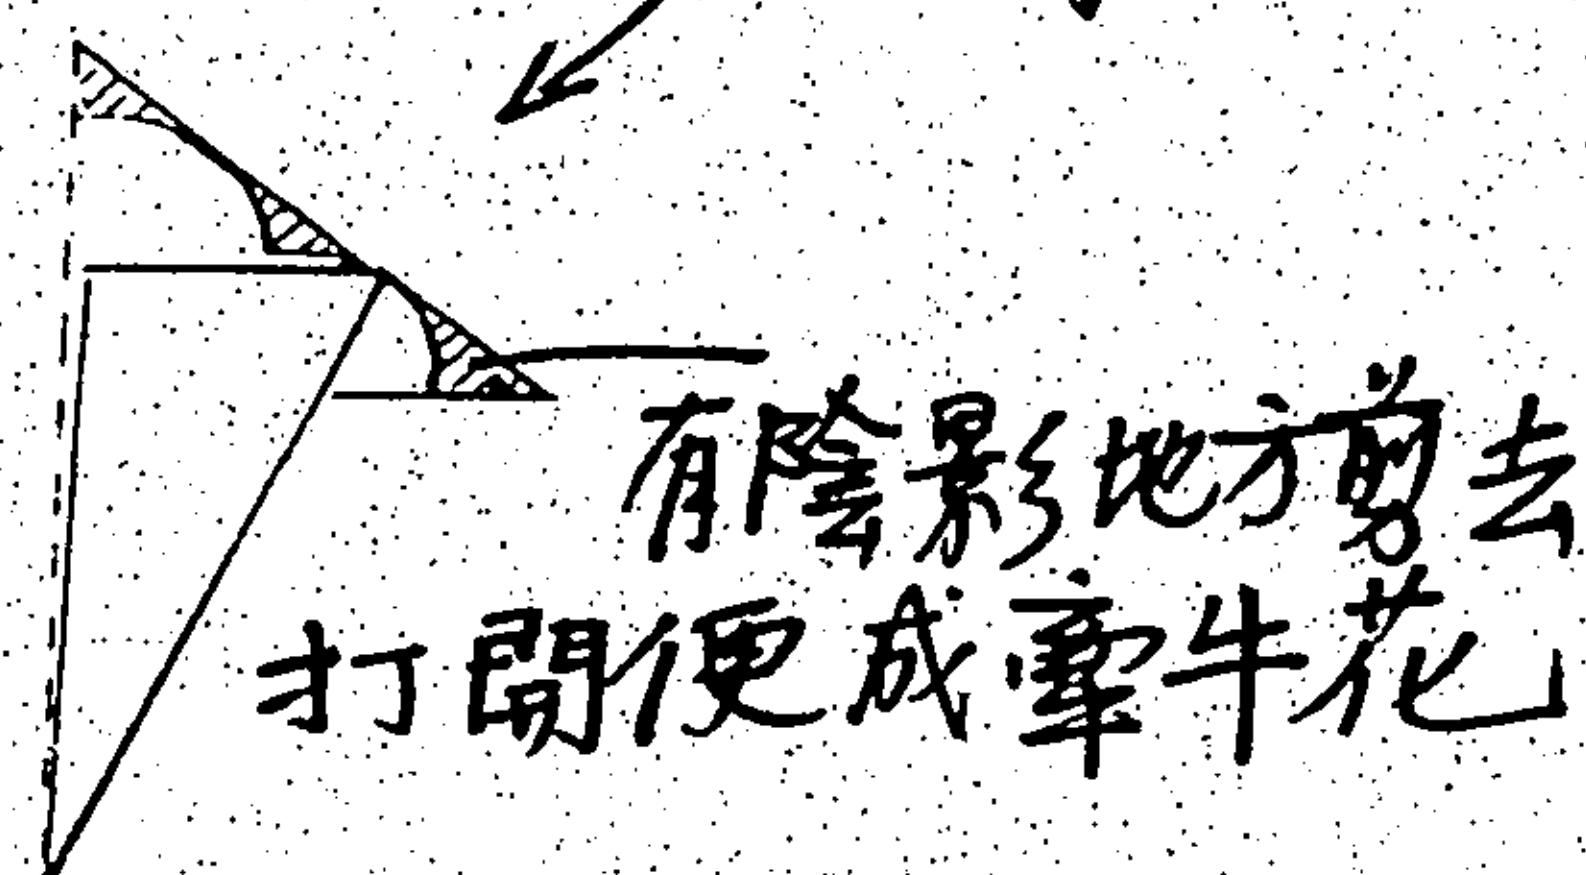 有陰影地方剪去
打開便成牽牛花